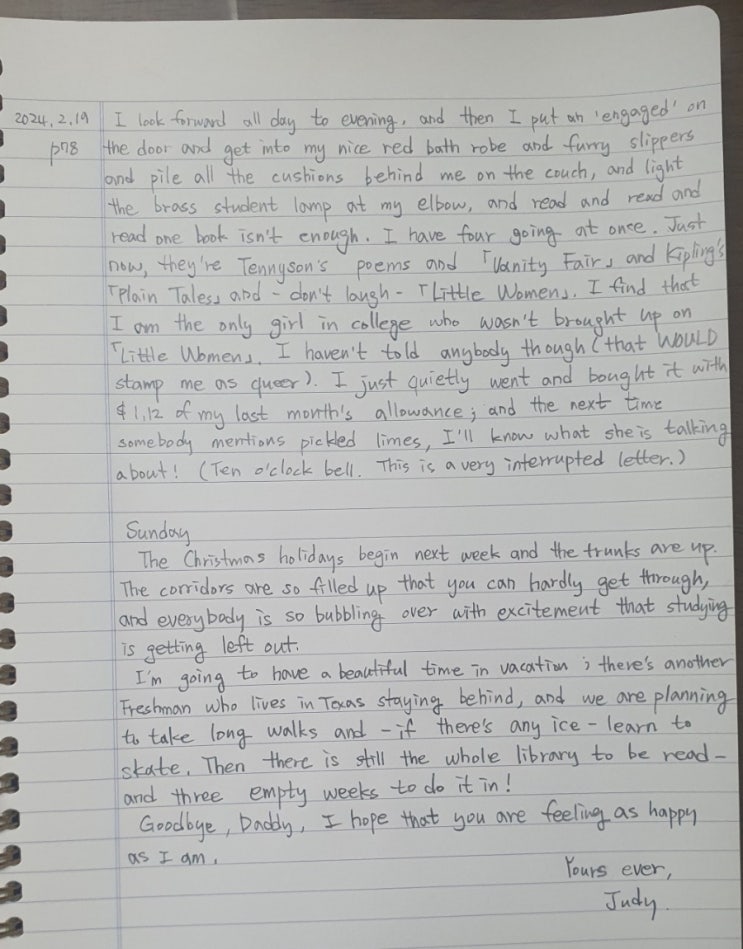 2024.2.19 I look forward all day to evening, and then I put an 'engaged' on
p78 the door and get into my nice red bath robe and furry slippers
and pile all the cushions behind me on the couch, and light
the brass student lamp at my elbow, and read and read and
read one book isn't enough. I have four going at once. Just
now, they're Tennyson's poems and 「Vanity Fair」 and Kipling's
「Plain Tales」 and - don't laugh - 「Little Women」. I find that
I am the only girl in college who wasn't brought up on
「Little Women」. I haven't told anybody though (that WOULD
stamp me as queer). I just quietly went and bought it with
$1,12 of my last month's allowance; and the next time
somebody mentions pickled limes, I'll know what she is talking
about! (Ten o'clock bell. This is a very interrupted letter.)
Sunday
The Christmas holidays begin next week and the trunks are up.
The corridors are so filled up that you can hardly get through,
and everybody is so bubbling over with excitement that studying
is getting left out.
I'm going to have a beautiful time in vacation; there's another
Freshman who lives in Texas staying behind, and we are planning
to take long walks and - if there's any ice - learn to
skate. Then there is still the whole library to be read -
and three empty weeks to do it in!
Goodbye, Daddy, I hope that you are feeling as happy
as I am.
Yours ever,
Judy.